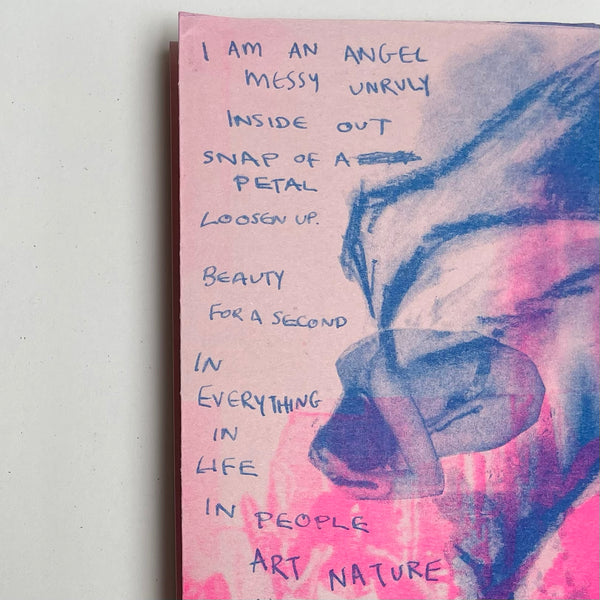 I AM AN ANGEL
MESSY UNRULY
INSIDE OUT
SNAP OF A
PETAL
LOOSEN UP.
BEAUTY
FOR A SECOND
IN
EVERYTHING
IN
LIFE
IN PEOPLE
ART NATURE